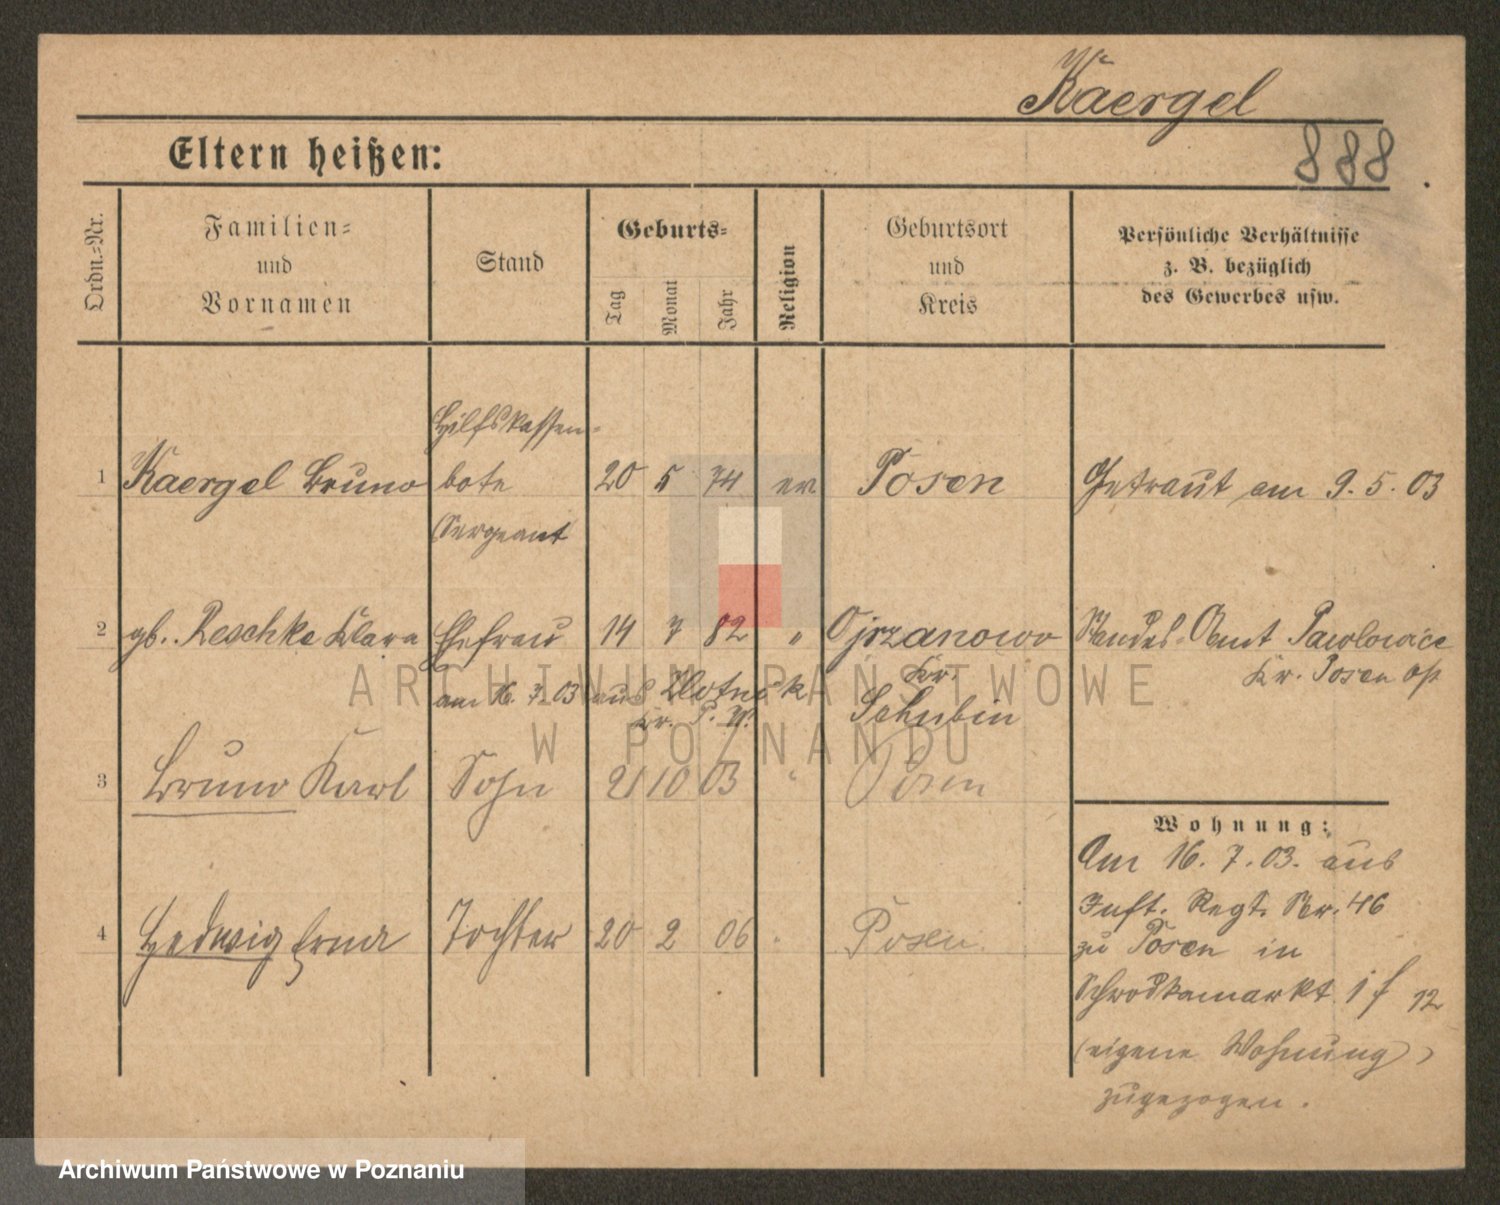 Kaergel
888
Eltern heißen:
Ordn.-Nr.
Familien-
und
Vornamen
Stand
Geburts-
Tag
Monat
Jahr
Religion
Geburtsort
und
Kreis
Persönliche Verhältnisse
z. B. bezüglich
des Gewerbes usw.
Hilfskassen-
1 Kaergel Bruno bote 20 5 74 ev Posen Getraut am 9. 5. 03
(Sergeant
2 gb. Reschke Klara Ehefrau 14 7 82 " Ojrzanowo Standes-Amt Pawlowice
Kr. Kr. Posen Ost
am 16. 7. 03 aus Zlotnik Schubin
Kr. P. W.
3 Bruno Karl Sohn 21 10 03 " Posen
Wohnung:
Am 16. 7. 03. aus
Inft. Regt. Nr. 46
4 Hedwig Erna Tochter 20 2 06 " Posen
zu Posen in
Schrodkamarkt 1 f 12
(eigene Wohnung)
zugezogen.
ARCHIWUM PAŃSTWOWE
W POZNANIU
Archiwum Państwowe w Poznaniu